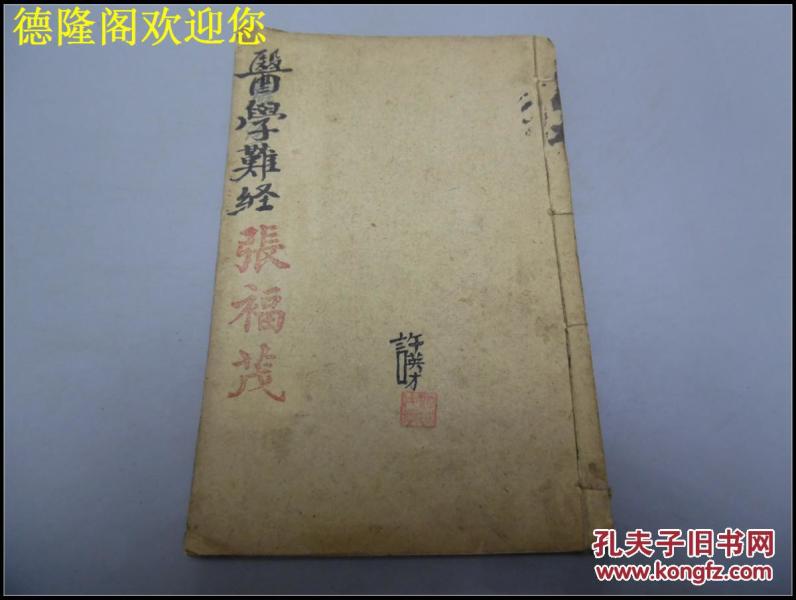 德隆阁欢迎您
醫學難经
張福茂
許英才
孔夫子旧书网
www.kongfz.com